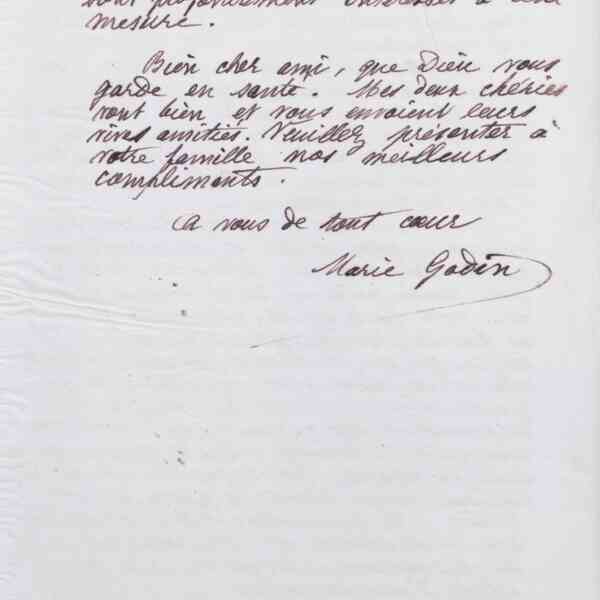 sont profondément intéressés à cette
mesure.
Bien cher ami, que Dieu vous
garde en santé. Mes deux chéries
vont bien et vous envoient leurs
vives amitiés. Veuillez présenter à
votre famille nos meilleurs
compliments.
A vous de tout cœur
Marie Godin